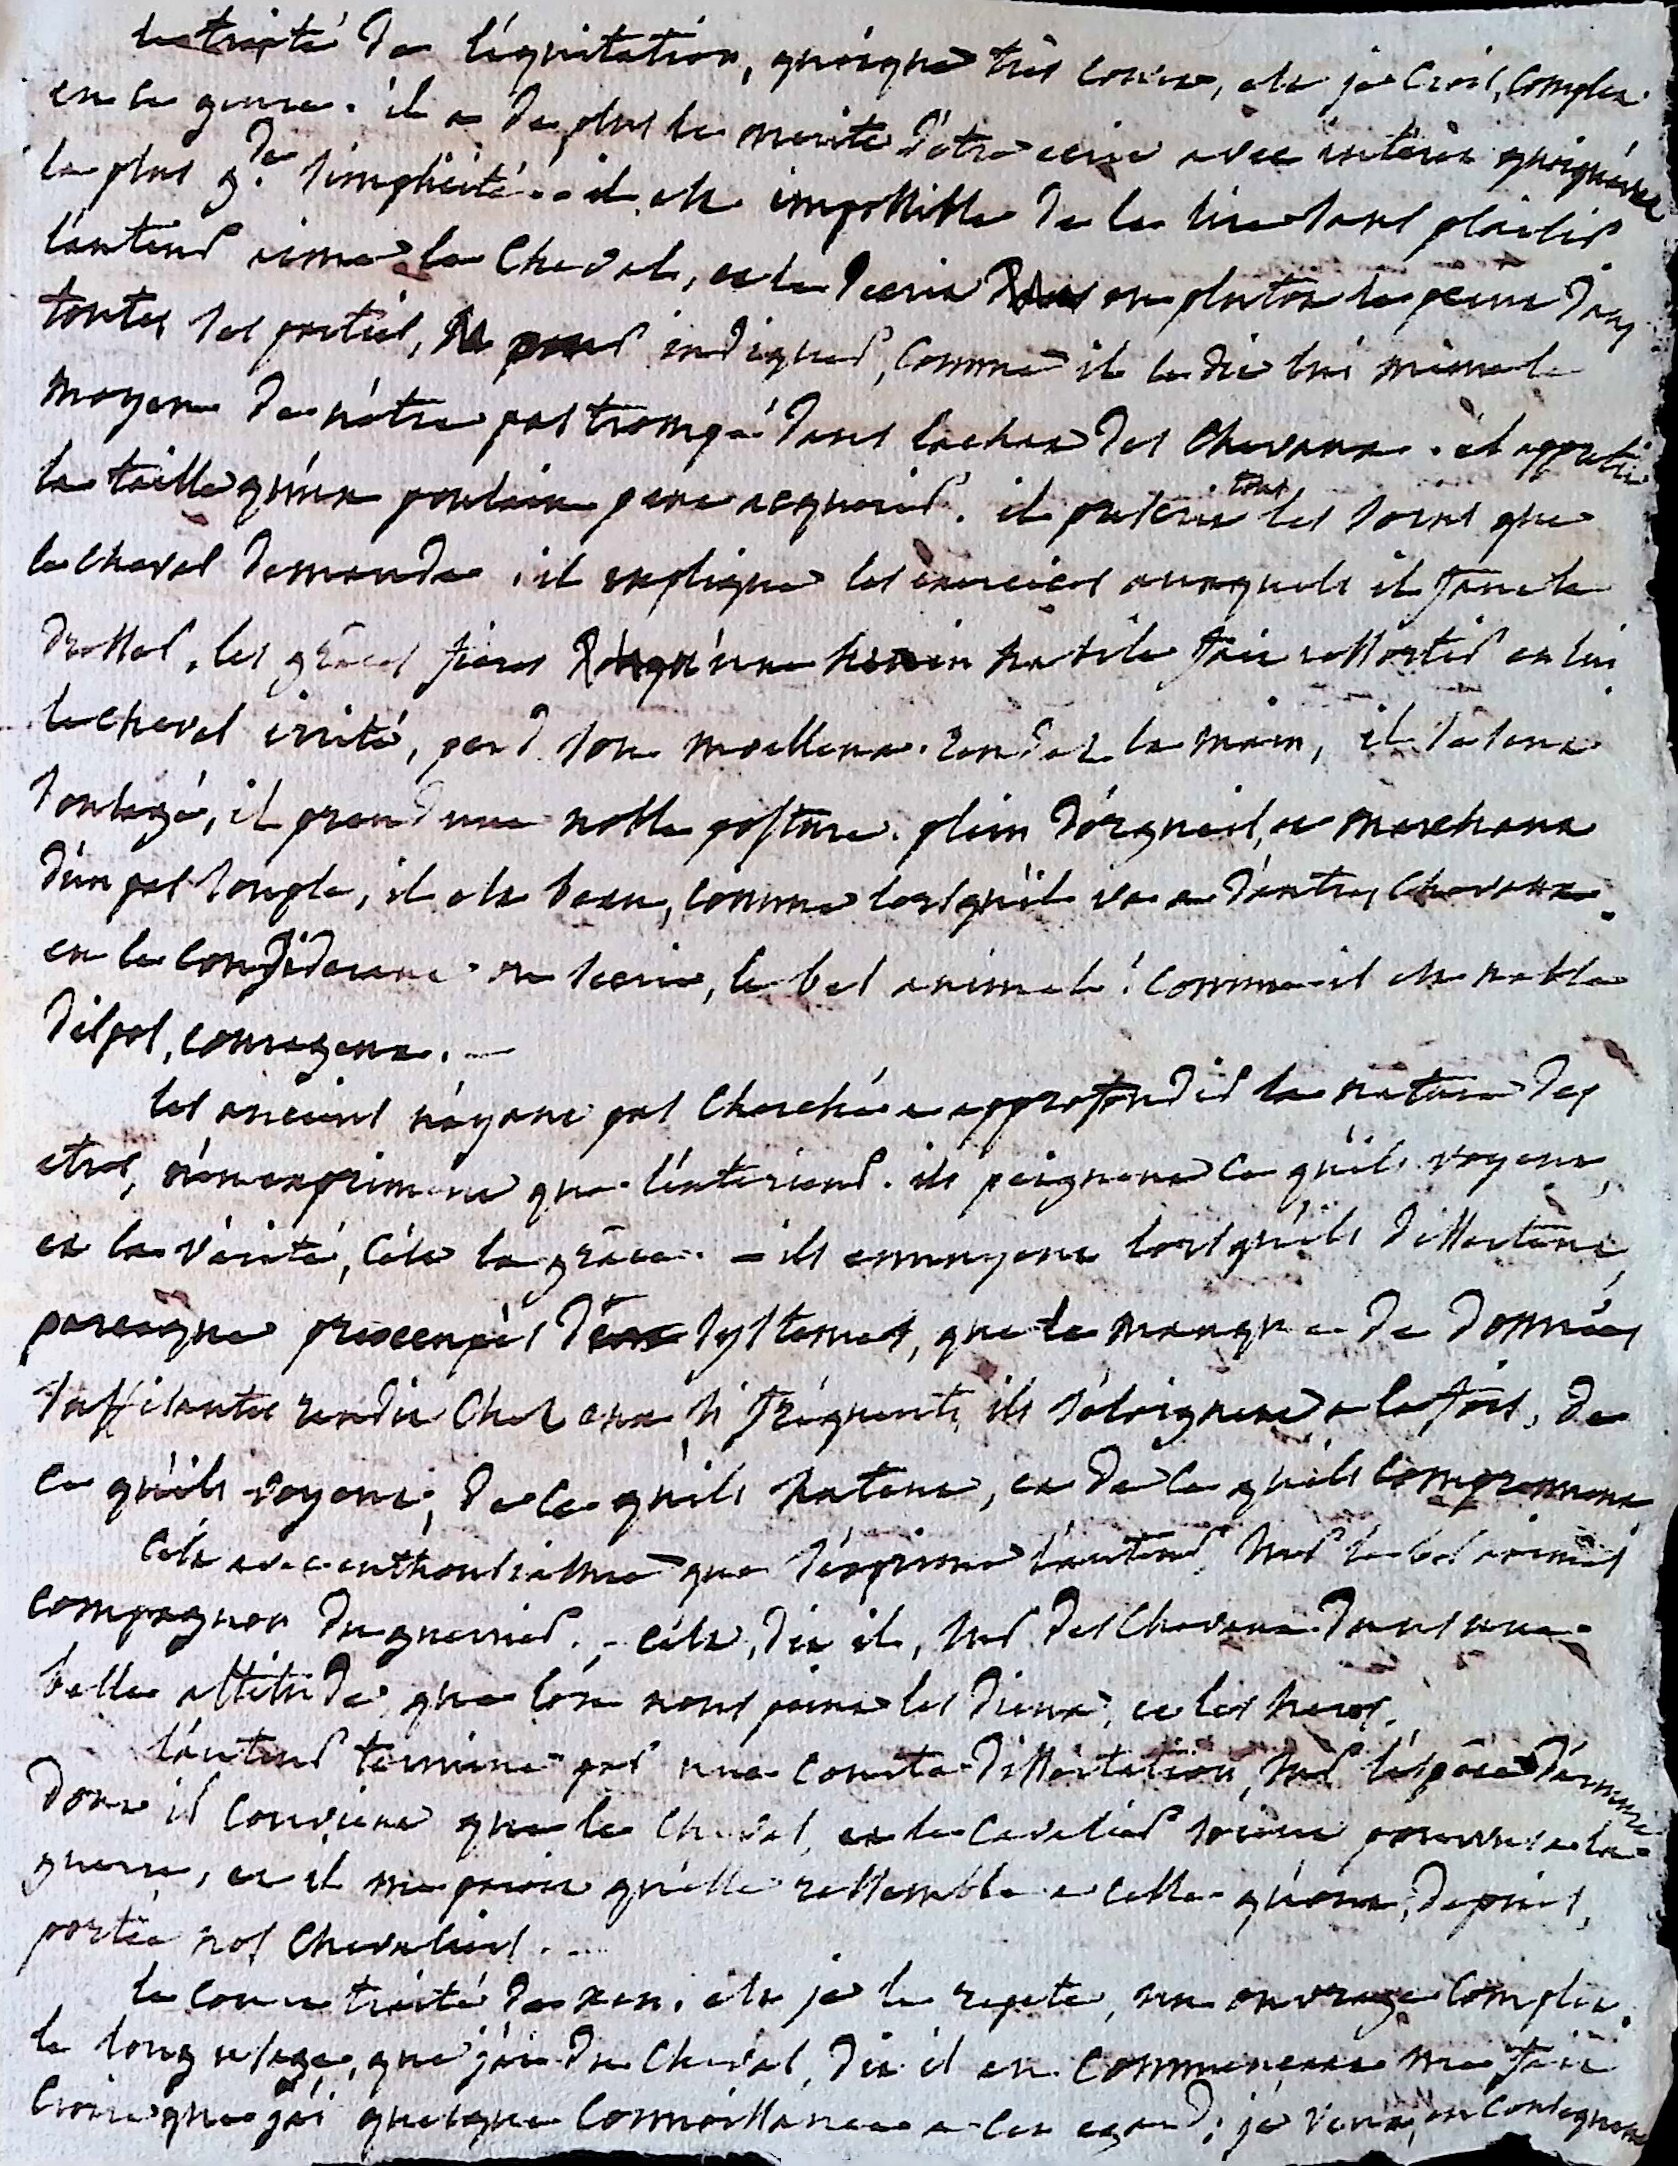 le traité de l'équitation, quoique très court, est je crois, complet
en ce genre. il a de plus le merite d'etre ecrit avec interêt quoiqu'avec
la plus g.de simplicité. il est impossible de le lire sans plaisir
l'auteur aime le cheval, et le decrit ou plutot le peint dans
toutes ses parties, pour indiquer, comme il le dit lui même le
moyen de n'être pas trompé dans l'achat des chevaux. il apprend
la taille qu'un poulain peut acquerir. il prescrit tous les soins que
le cheval demande, il explique les exercices auxquels il faut le
dresser, les grâces fieres qu'une main habile fait ressortir en lui.
le cheval irrité, perd son moelleux. rendez la main, il se sent
soulagé, il prend une noble posture. plein d'orgueil, et marchant
d'un pas souple, il est beau, comme lorsqu'il va a d'autres chevaux.
en le considerant on s'ecrie, le bel animal! comme il est noble
dispos, courageux. —
les anciens n'ayant pas cherché a approfondir la nature des
etres, n'en expriment que l'exterieur. ils peignent ce qu'ils voyent,
et la vérité, c'est la grâce. — ils ennuyent lorsqu'ils dissertent,
parceque preoccupés de systemes, que le manque de données
suffisantes rendit chez eux si fréquents, ils s'eloignent a la fois, de
ce qu'ils voyent, de ce qu'ils sentent, et de ce qu'ils comprennent
c'est avec enthousiasme que s'exprime l'auteur, sur le bel animal
compagnon du guerrier. — c'est, dit il, sur des chevaux dans une
belle attitude que l'on nous peint les dieux, et les heros.
l'auteur termine par une courte dissertation, sur l'espèce d'armure
dont il convient que le cheval, et le cavalier soient pourvus a la
guerre, et il me paroit qu'elle ressemble a celle qu'ont, depuis,
portée nos chevaliers. —
le court traité de xen. est je le repete, un ouvrage complet.
le long usage, que j'ai du cheval, dit il en commencant me fait
croire que j'ai quelque connoissance a cet egard; je veux, en consequence